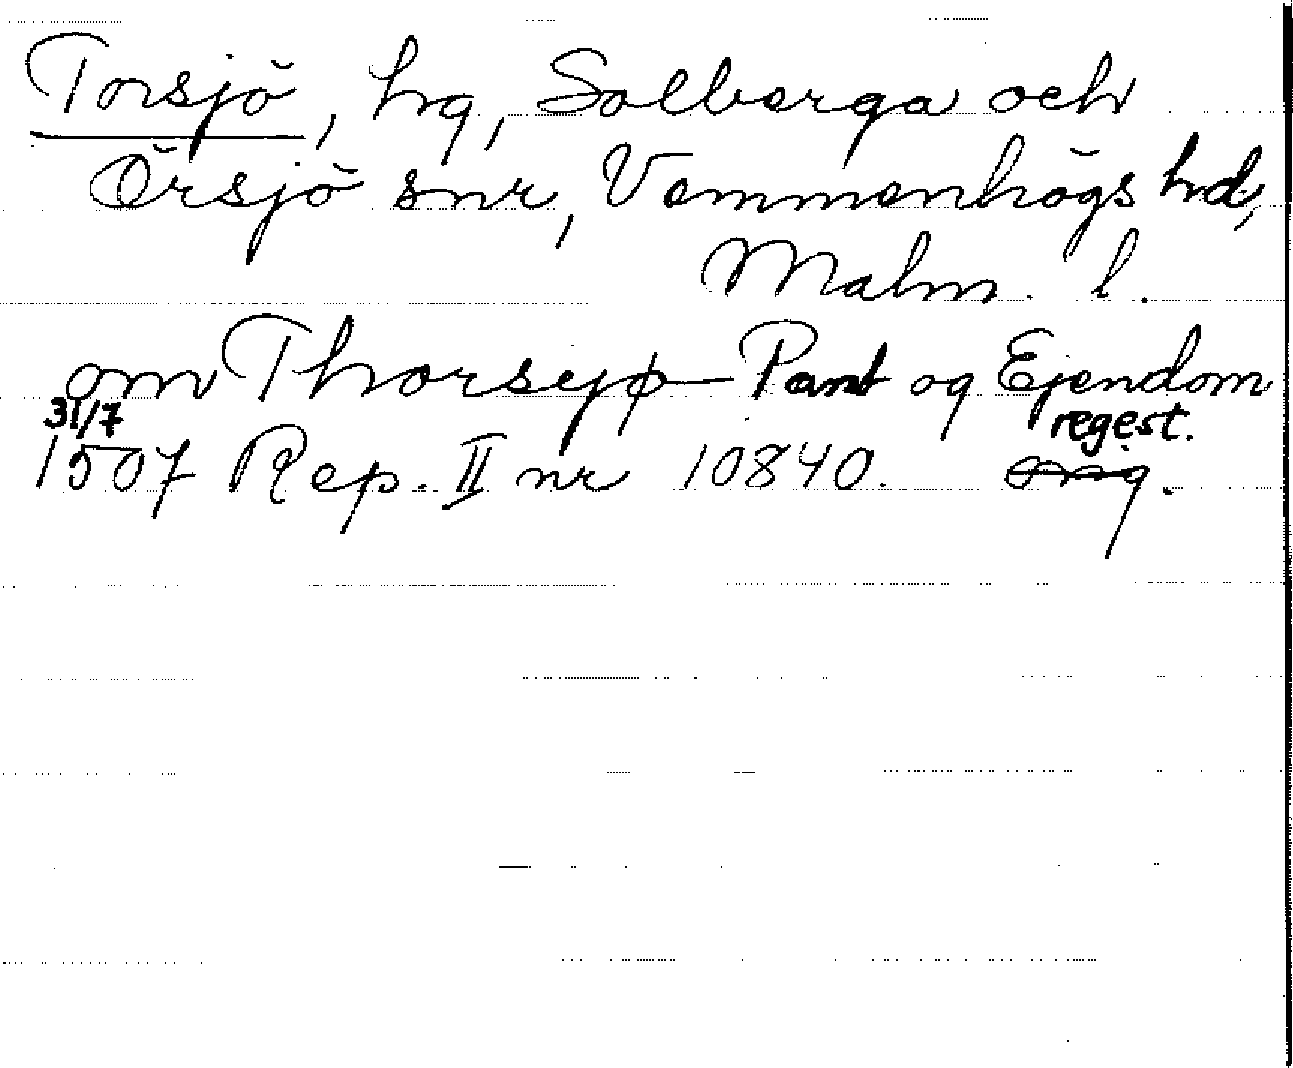 Torsjö, hg, Solberga och
Örsjö snr, Vemmenhögs hd,
Malm. l.
om Thorseyø Pant og Ejendom
31/7 regest.
1507 Rep. II nr 10840. orig.